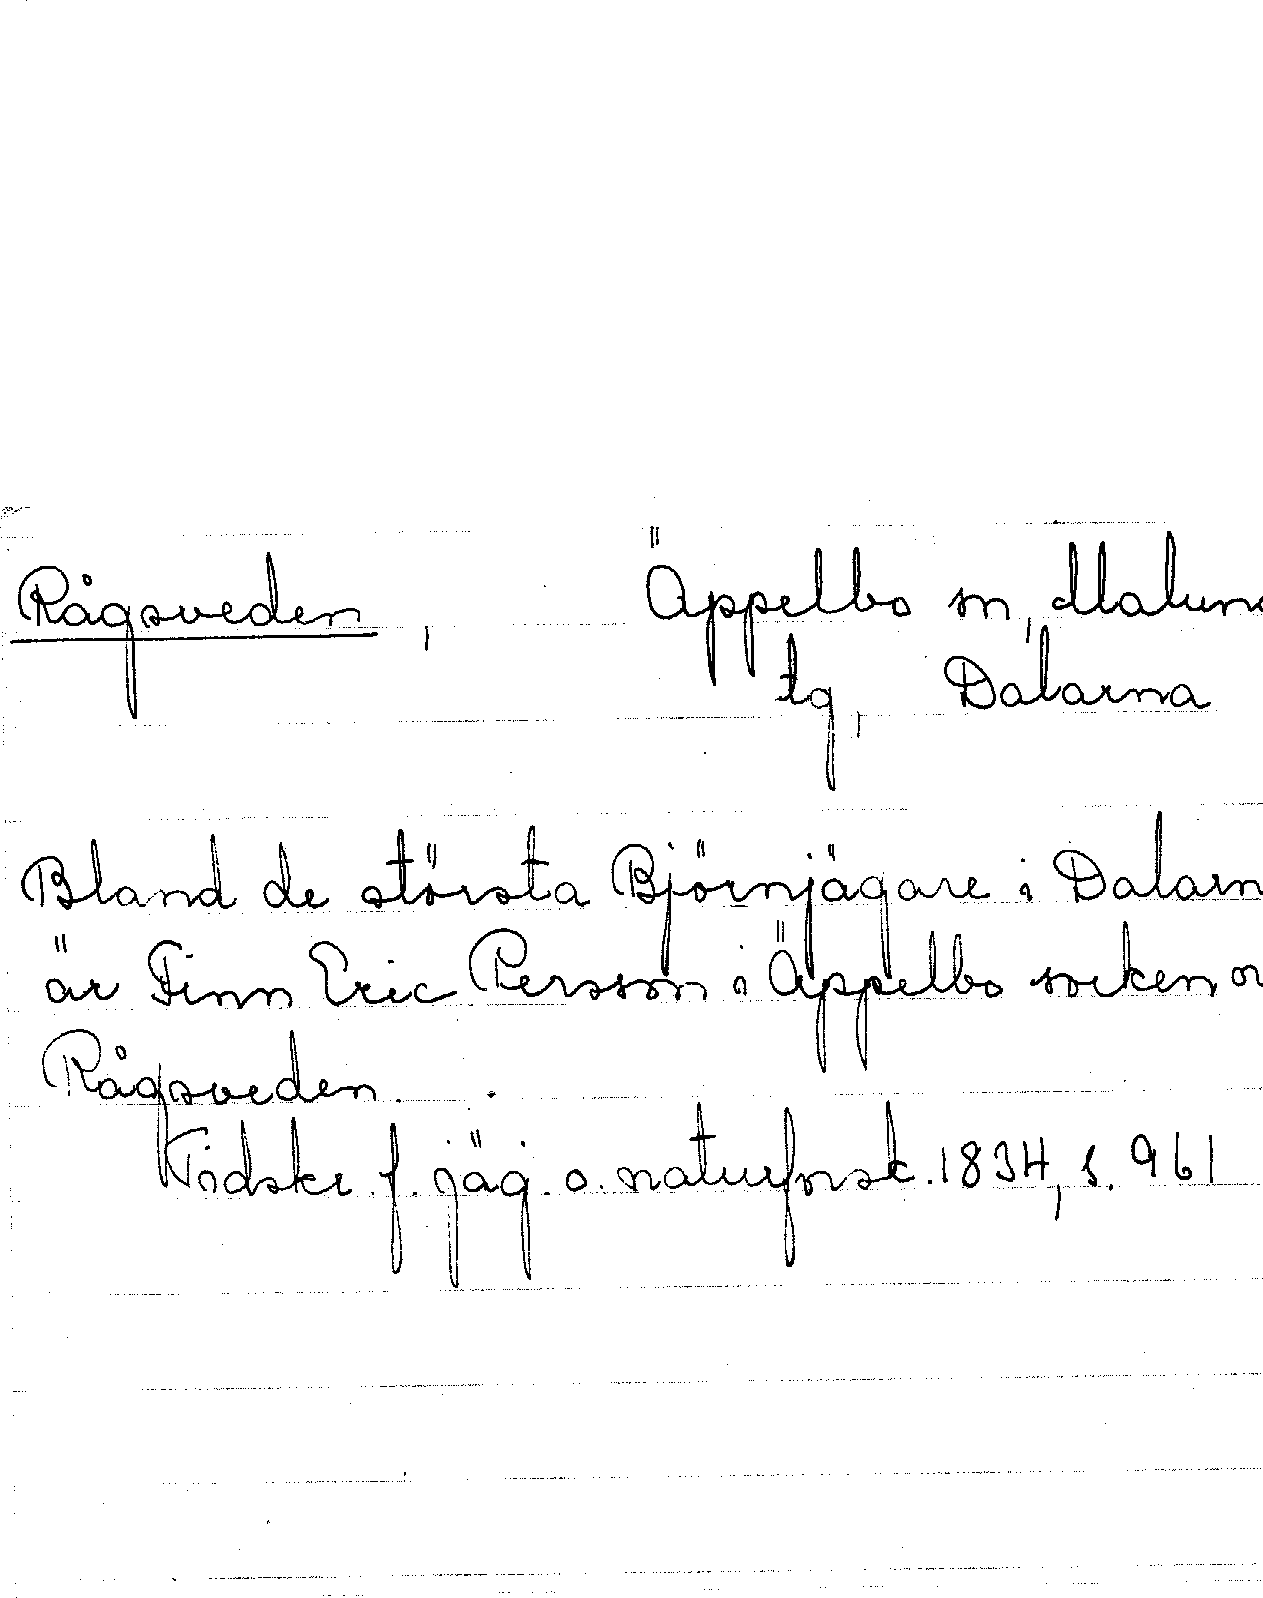 Rågsveden, Äppelbo sn, Malung
tg, Dalarna
Bland de största Björnjägare i Dalarn
är Finn Eric Persson i Äppelbo socken o
Rågsveden.
Tidskr. f. jäg. o. naturforsk. 1834, s. 961